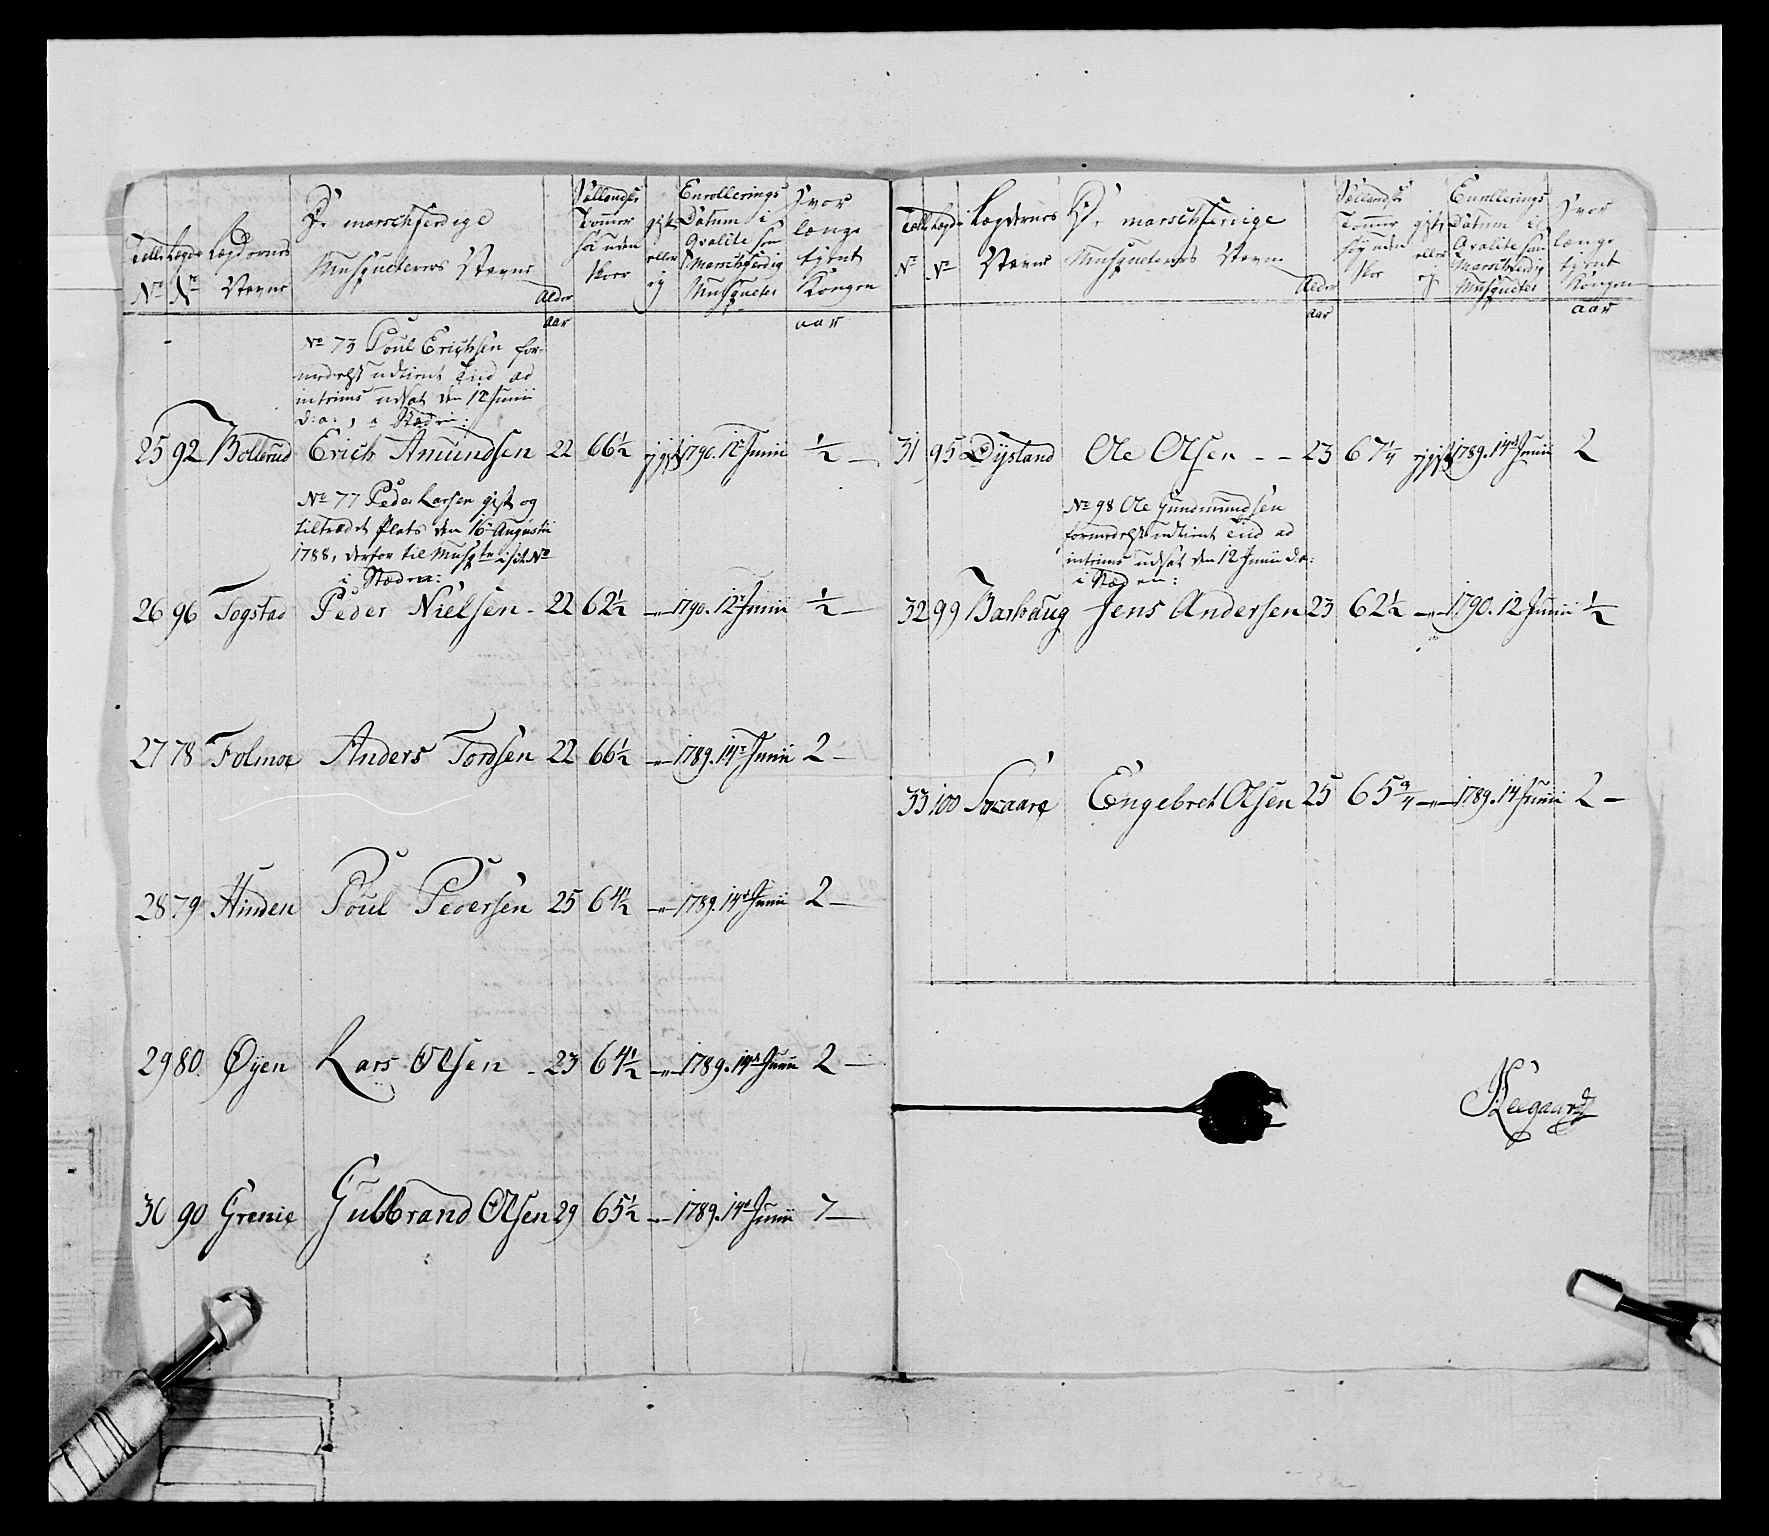 Tolle Nr
Lægde Nr
Lægdernes Navne
De marschferdige Musqueterers Navne
Alder
aar
Sællands Tommer høi uden Skoe
gift eller ej
Enrollerings Datum i Qvalite som Marschferdig Musqueter
Hvor længe tjent Kongen
aar
No 73 Poul Erichsen for-
medelst udtient Tiid ad
intrims udsat den 12 Junii
d: a: , i Stæden:
25 92 Bollerud Erich Amundsen 22 66½ ugift 1790. 12te Junii ½ —
No 77 Peder Larsen gift og
tiltrædt Plads den 16 Augustii
1788, derfor til
i Stæden:
26 96 Togstad Peder Nielsen - 22 62½ —"— 1790. 12te Junii ½ —
27 78 Folmoe Anders Tordsen 22 66½ —"— 1789. 14de Junii 2 —
28 79 Hinden Poul Pedersen 25 64½ —"— 1789. 14de Junii 2 —
29 80. Øyen Lars Olsen - 23 64½ —"— 1789. 14de Junii 2 —
30 90 Grenie Gulbrand Olsen 29 65½ —"— 1789. 14de Junii 7 —
Tolle Nr
Lægde Nr
Lægdernes Navne
De marschferdige Musqueterers Navne
Alder
aar
Sællands Tommer høy uden Skoe
gift eller ej
Enrollerings Datum i Qvalite som Marschferdig Musqueter
Hvor længe tjent Kongen
aar
31 95 Dystand Ole Olsen - - 23 67¼ ugift 1789. 14de Junii 2
No 98 Ole Gundmundsen
formedelst udtient Tiid ad
intrims udsat den 12 Junii d: a:
i Stæden:
32 99 Barhaug Jens Andersen 23 62½ —"— 1790. 12 Junii ½
33 100 Engebret Olsen 25 65¾ —"— 1789. 14 Junii 2 —